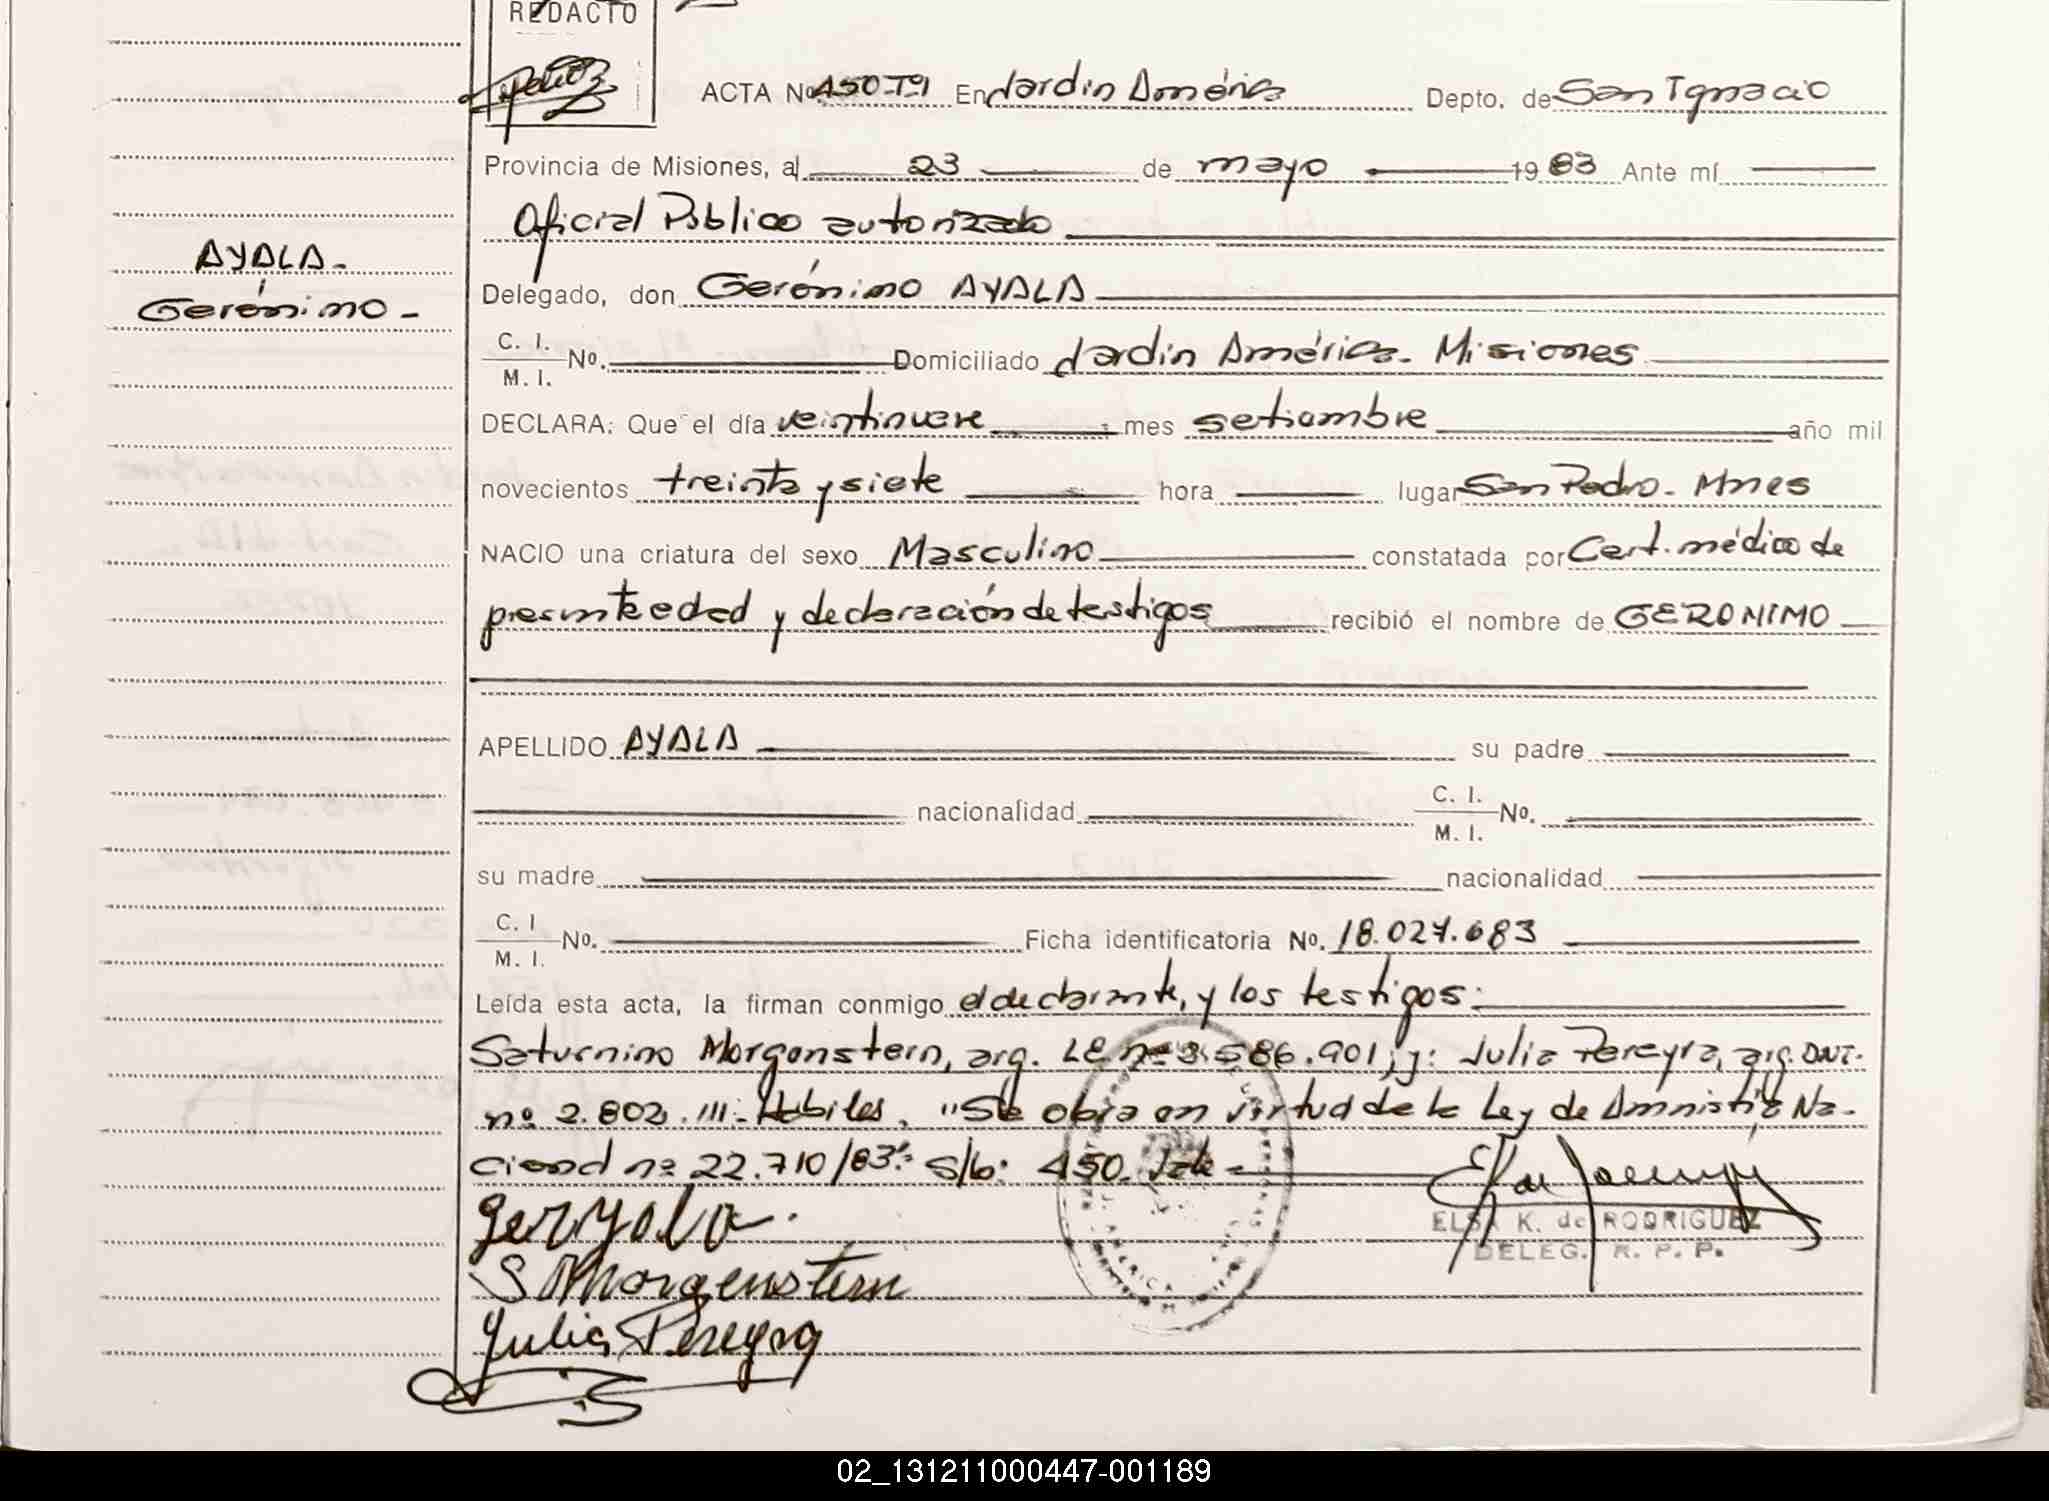 REDACTO
ACTA Nº 450-T9 En Jardín América Depto. de San Ignacio
Provincia de Misiones, al 23 de mayo 1983 Ante mí
Oficial Público autorizado
AYALA-
Delegado, don Gerónimo AYALA
Gerónimo-
C. I.
M. I. Nº. Domiciliado Jardín América. Misiones
DECLARA: Que el día veintinueve mes setiembre año mil
novecientos treinta y siete hora lugar San Pedro- Mnes
NACIO una criatura del sexo Masculino constatada por Cert. médico de
presunta edad y declaración de testigos recibió el nombre de GERONIMO
APELLIDO AYALA su padre
nacionalidad C. I. M. I. Nº.
su madre nacionalidad
C. I M. I. Nº. Ficha identificatoria Nº. 18.027.683
Leída esta acta, la firman conmigo el declarante, y los testigos:
Saturnino Morgenstern, arg. LE nº 3.586.901; y: Julia Pereyra, arg. DNI.
nº 2.802.111- Hábiles. "Se obra en virtud de la Ley de Amnistía Na-
cional nº 22.710/83". S/b: 450. Vale-
gerAyala.
S Morgenstern
ELSA K. de RODRIGUEZ
DELEG. R. P. P.
Julia Pereyra
02_131211000447-001189